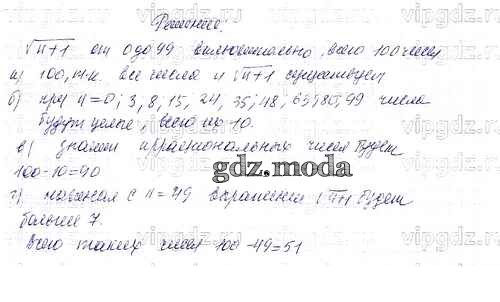 Решение.
√n+1 от 0 до 99 включительно, всего 100 чисел
а) 100, т.к. все числа и √n+1 существует
б) при n=0; 3, 8, 15, 24, 35, 48, 63, 80, 99 числа
будут целые, всего их 10.
в) значит иррациональных чисел будет
100-10=90
г) начиная с n=49 выражение √n+1 будет
больше 7.
Всего таких чисел 100-49=51
gdz.moda
vipgdz.com